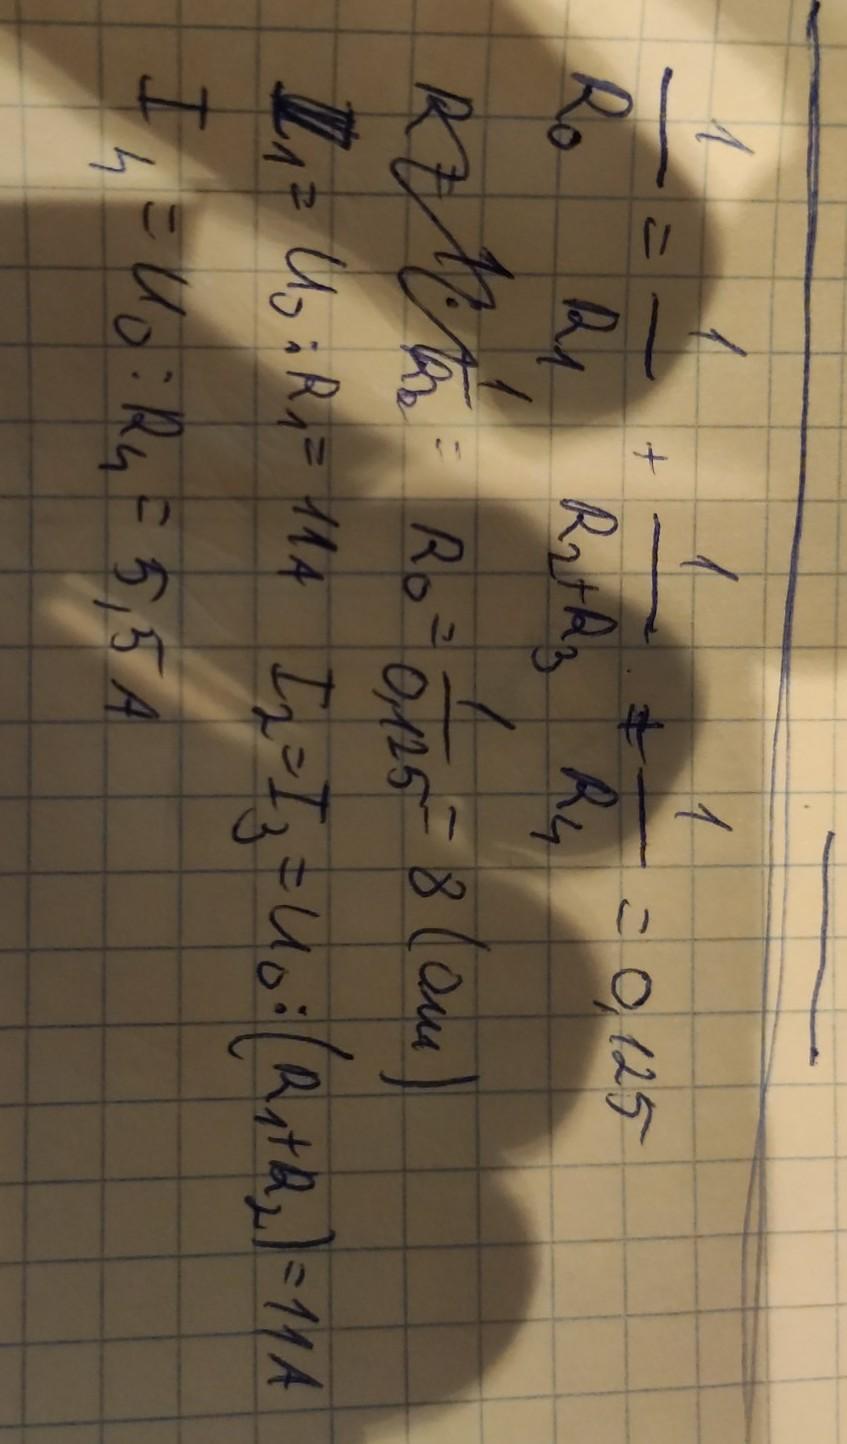 1/R₀ = 1/R₁ + 1/(R₂+R₃) + 1/R₄ = 0,125
R₀ = 1/0,125 = 8 (Ом)
I₁ = U₀ : R₁ = 11А I₂ = I₃ = U₀ : (R₁+R₂) = 11А
I₄ = U₀ : R₄ = 5,5А